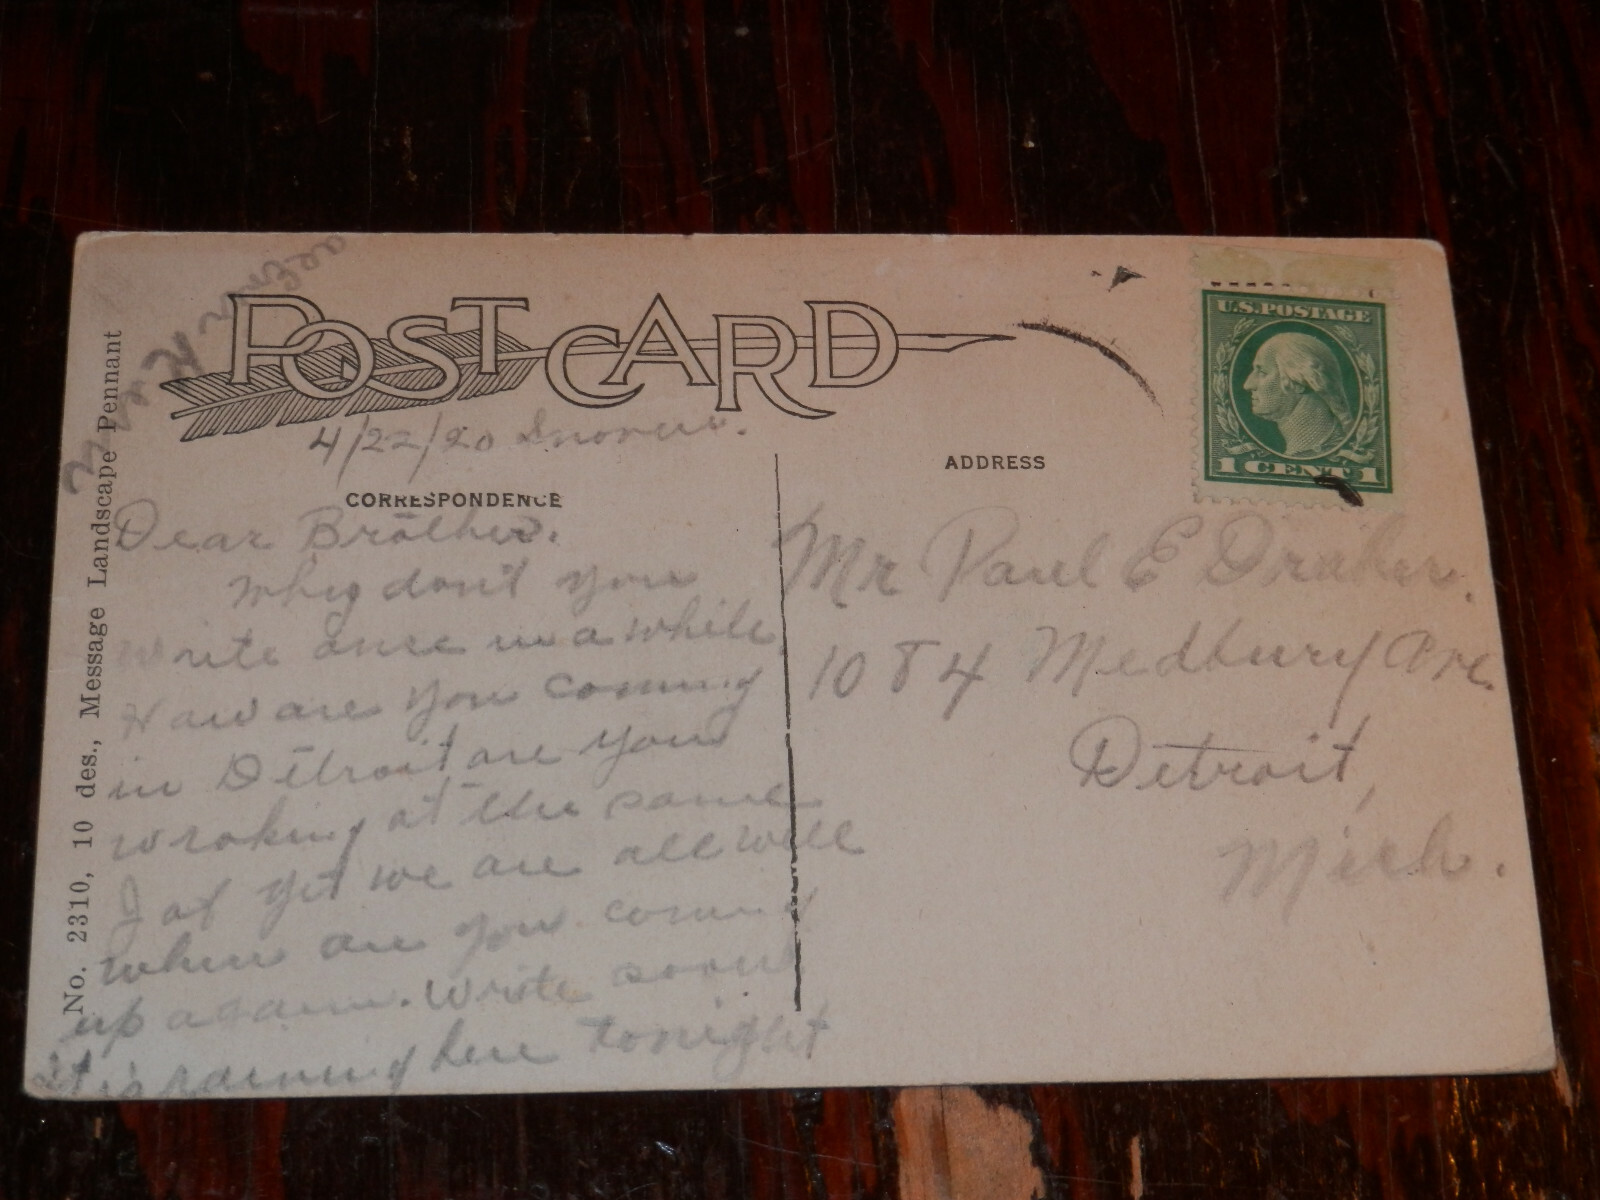 POST CARD
U.S. POSTAGE
1 CENT 1
4/22/20
ADDRESS
CORRESPONDENCE
Dear Brother.
Why don't you
write once in a while
How are you coming
in Detroit are you
wroking at the same
Jof yet we are all well
when are you coming
up again. Write soon
it is raining here tonight
Mr Paul E
1084 Medbury Ave.
Detroit,
Mich.
No. 2310, 10 des., Message Landscape Pennant